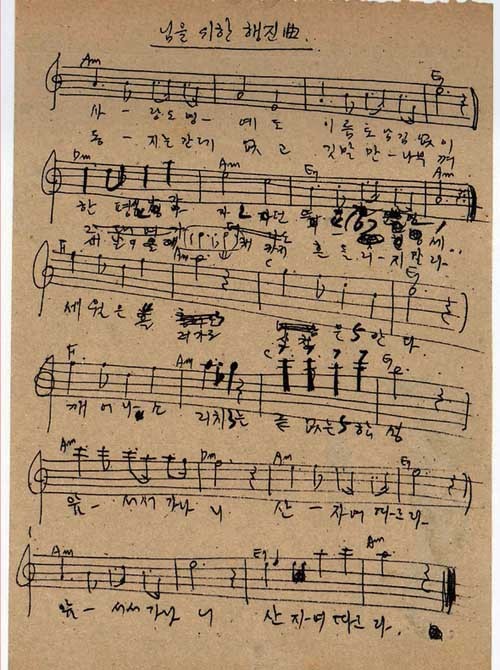 님을 위한 행진曲.
Am E7
사 - 랑도 명 - 예도 이름도 남김없이
동 - 지는 간데 없고 깃발만 - 나부껴
Dm Am E7 Am
한 평생
새 날이 올때 까지 흔들리 - 지 말라
F Am C G
세월은
은 안다
F Am C G
깨어나 소리치는 끝없는 함성
Am Dm Am E7
앞 - 서서 가나니 산 - 자여 따르라
Am E7 Am
앞 - 서서 가나니 산자여 따르라.